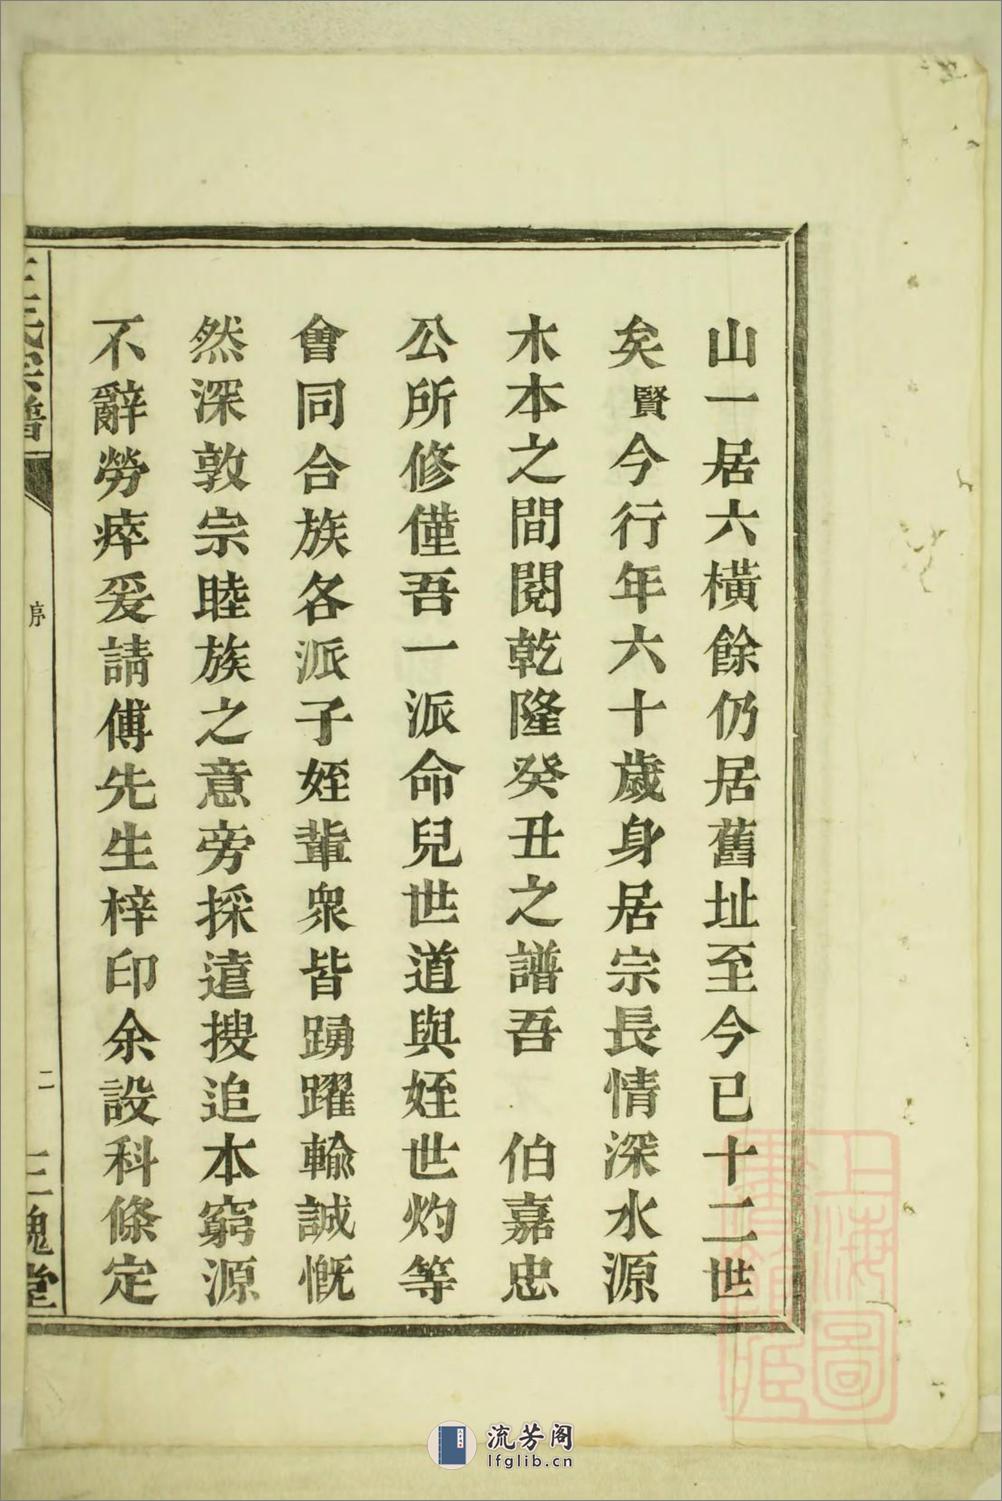 山一居六橫餘仍居舊址至今已十二世
矣賢今行年六十歲身居宗長情深水源
木本之間閱乾隆癸丑之譜吾　伯嘉忠
公所修僅吾一派命兒世道與姪世灼等
會同合族各派子姪輩衆皆踴躍輸誠慨
然深敦宗睦族之意旁採遠搜追本窮源
不辭勞瘁爰請傅先生梓印余設科條定
王氏宗譜
序
二
三槐堂
上海圖
書館藏
流芳阁
lfglib.cn